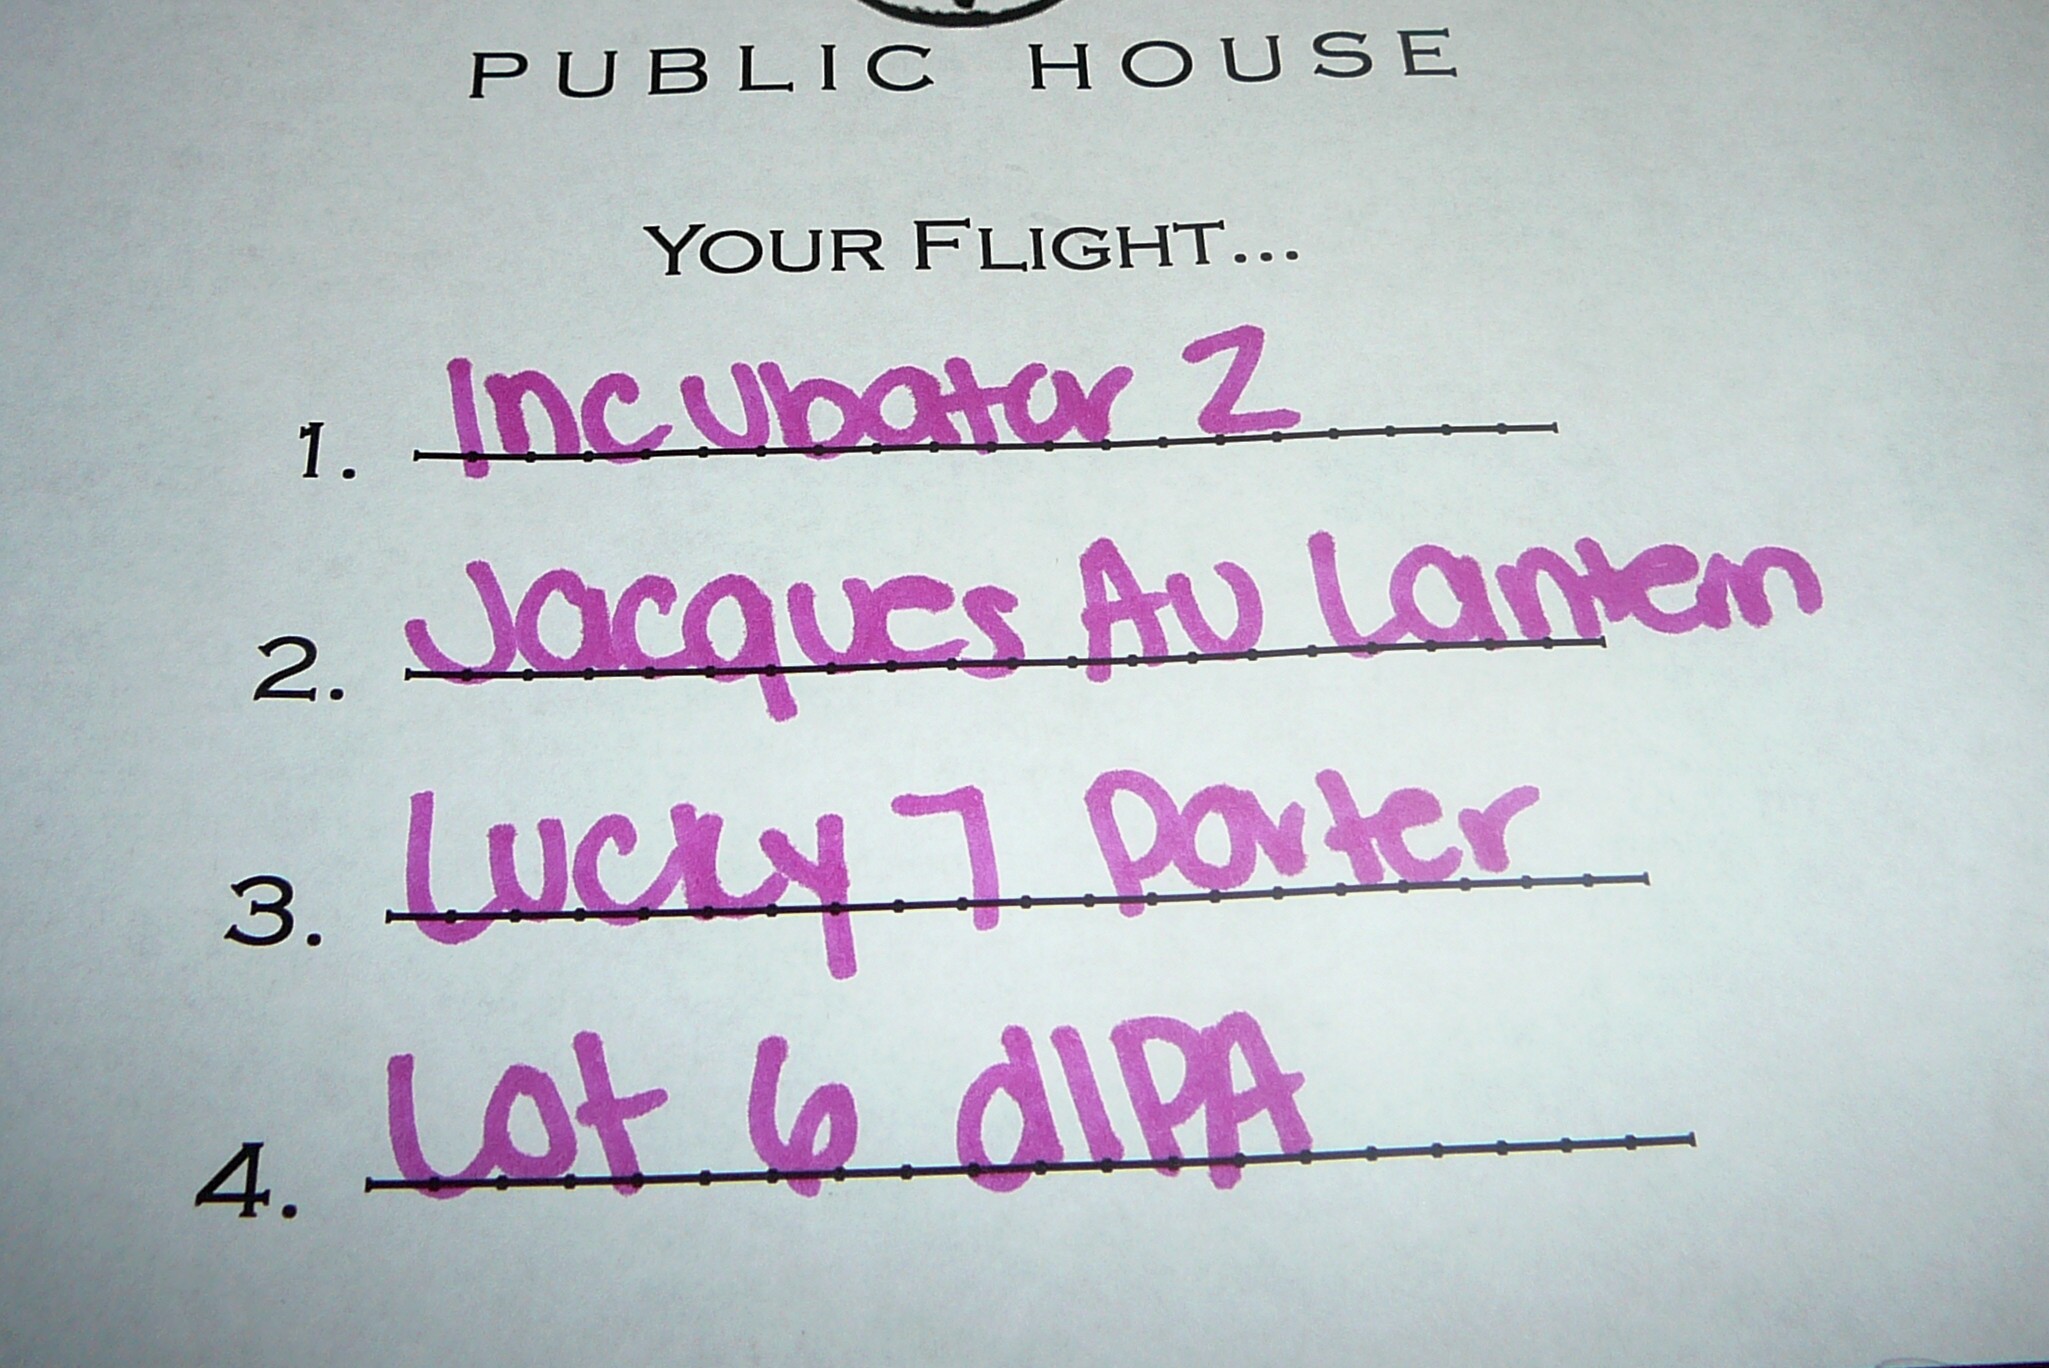 PUBLIC HOUSE
YOUR FLIGHT...
1. Incubator 2
2. Jacques Au Lantern
3. Lucky 7 Porter
4. Lot 6 dIPA